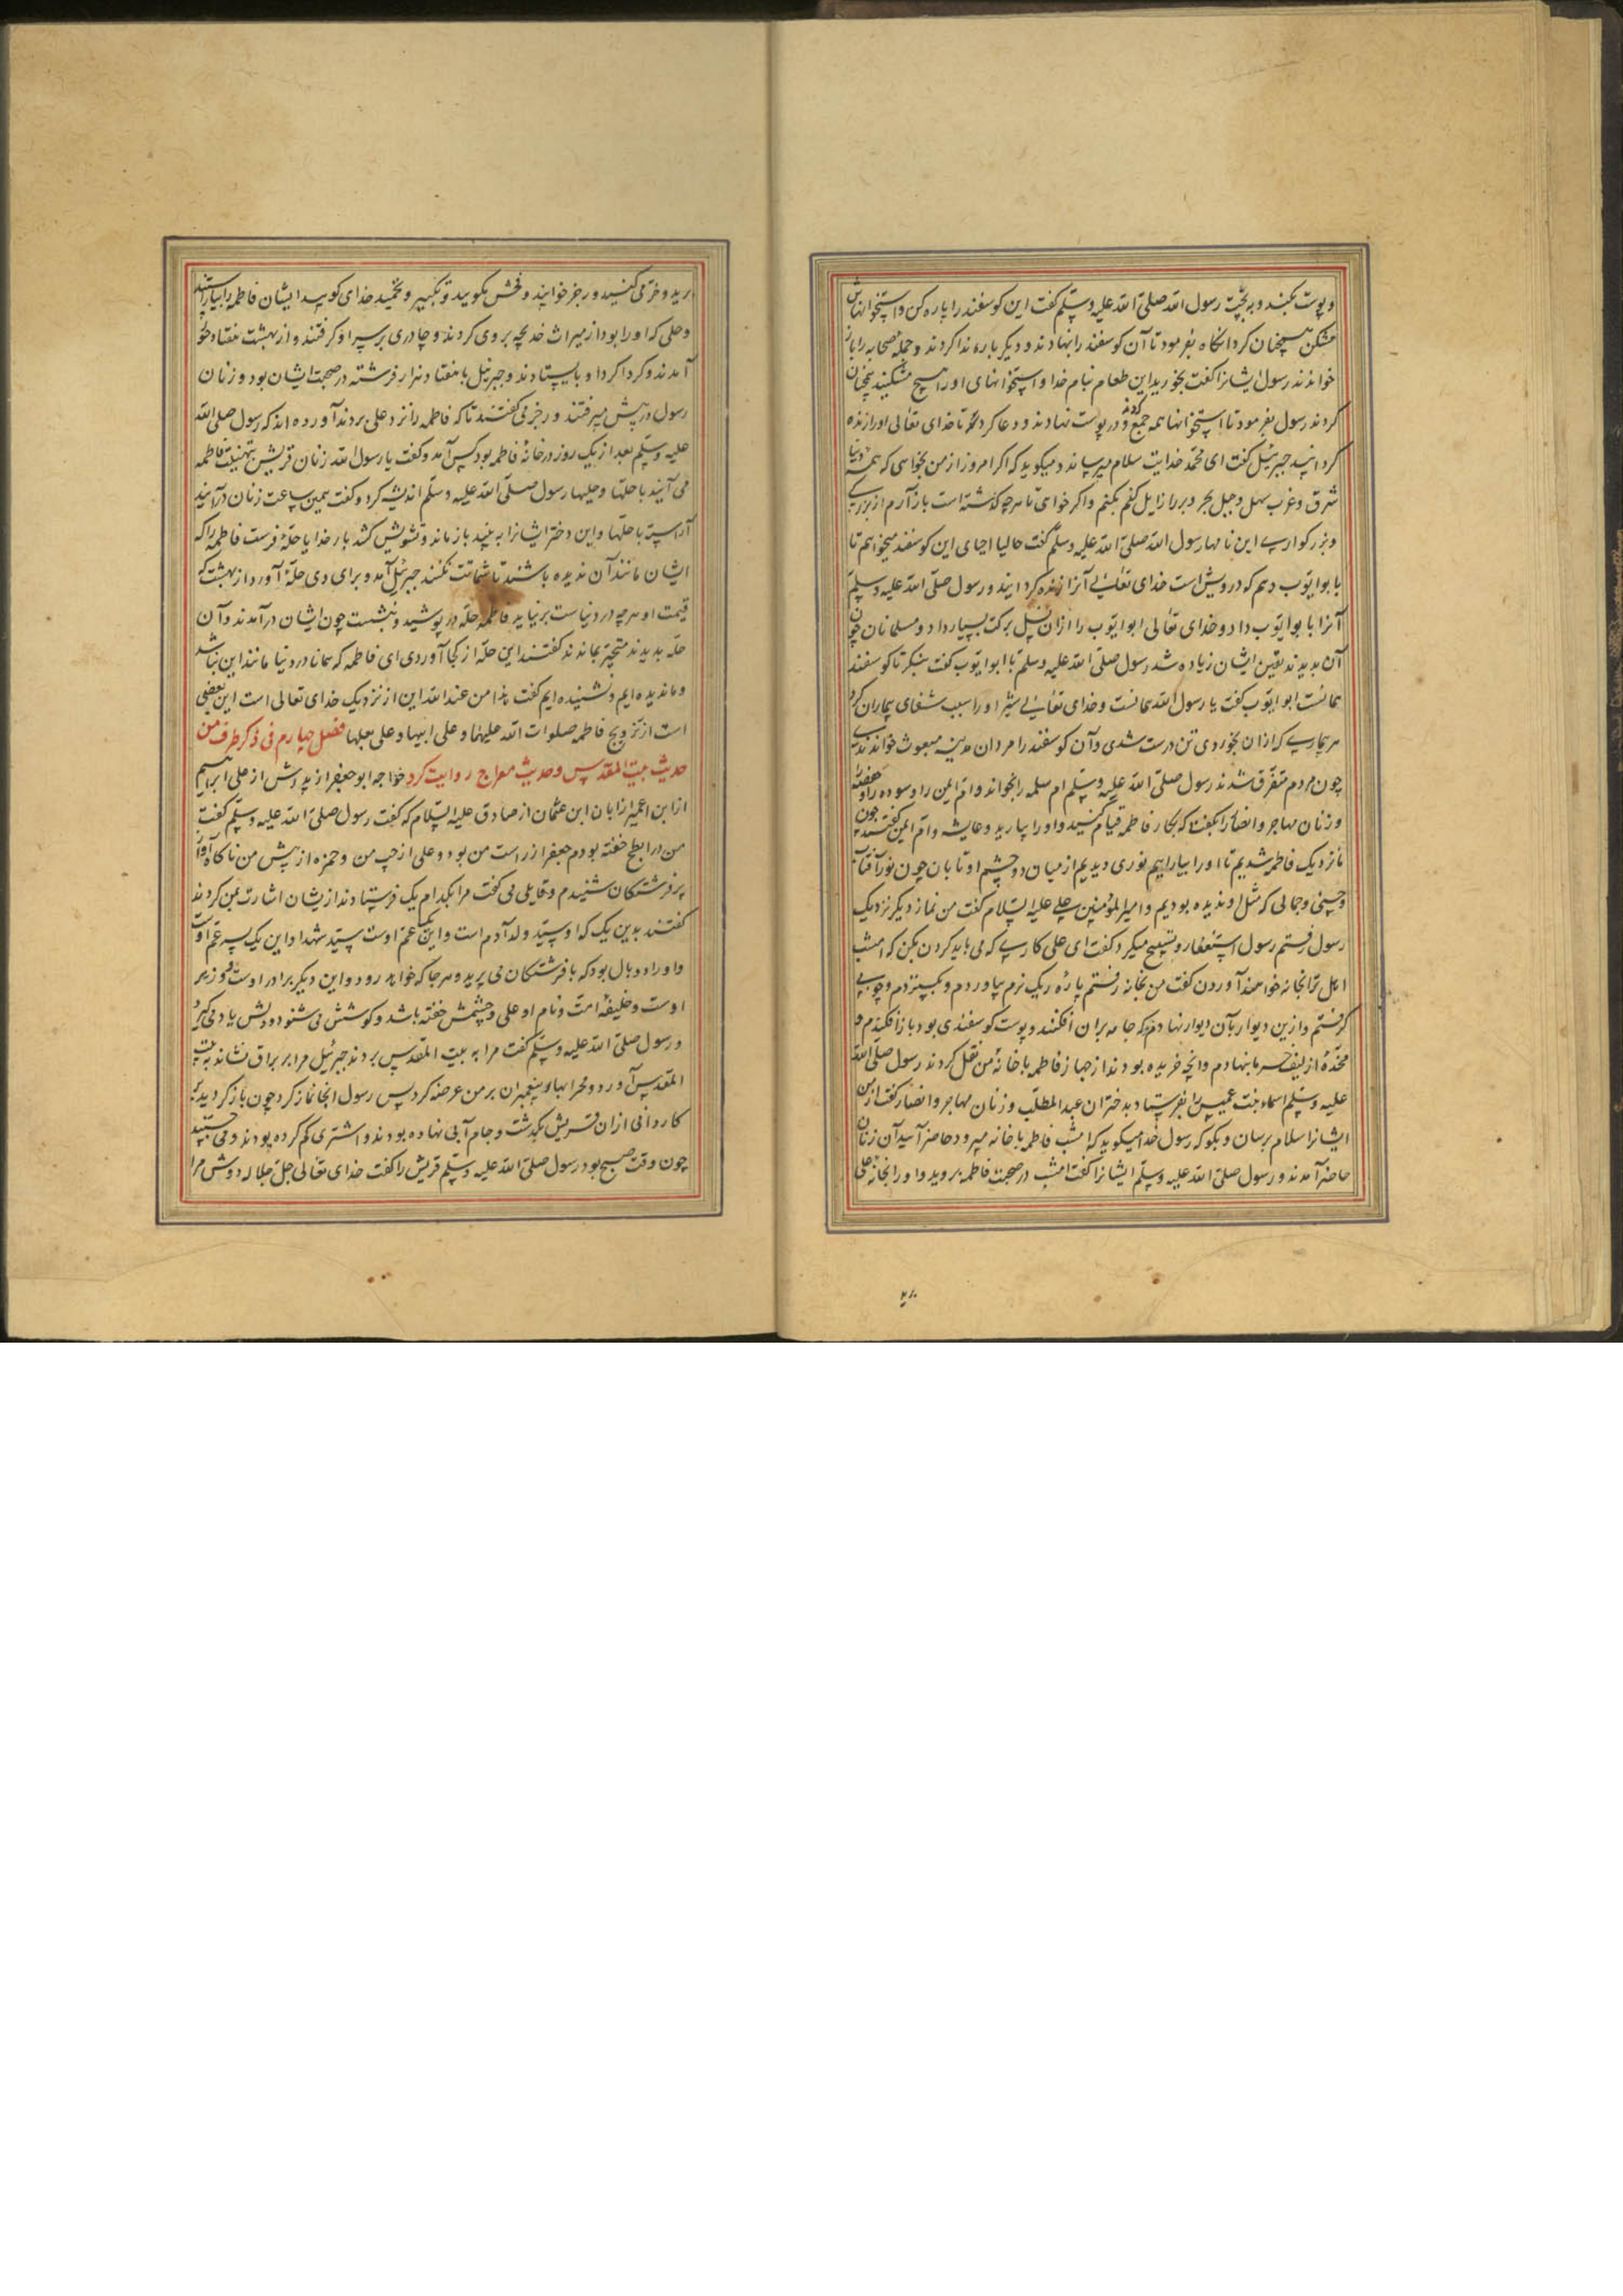 و پوست بکند و به پخت رسول الله صلی الله علیه وسلم گفت این کوسفند را پاره کن و استخوانهاش
مشکن همچنان کرد انگاه بفرمود تا آن کوسفند را نهادند و دیگر باره ندا کردند و جمله صحابه را باز
خواندند رسول ایشانرا گفت بخورید این طعام بنام خدا و استخوانهای او را هیچ مشکنید همچنان
کردند رسول بفرمود تا استخوانها همه جمع کردند و در پوست نهادند و دعا کرد تا خدای تعالی او را زنده
کردانید جبرئیل گفت ای محمد خدایت سلام میرساند و میکوید که اگر امروز از من بخواهی که همه دنیا
شرق و غرب سهل و جبل بحر و بر را زایل کنم بکنم و اگر خواهی تا هر چه کذشته است باز آرم از بزرکی
و بزرکواری این نامها رسول الله صلی الله علیه وسلم گفت حالیا احیای این کوسفند میخواهم تا
با بوایوب دهم که درویش است خدای تعالی آنرا زنده کردانید و رسول صلی الله علیه وسلم
آنرا با بوایوب داد و خدای تعالی ابوایوب را از ان نسل برکت بسیار داد و مسلمانان چون
آن بدیدند یقین ایشان زیاده شد رسول صلی الله علیه وسلم با ابوایوب گفت بنکر تا کوسفند
همانست ابوایوب گفت یا رسول الله همانست و خدای تعالی شیر او را سبب شفای بیماران کرد
هر بیماری که از ان بخوردی تن درست شدی و آن کوسفند را مردان مدینه مبعوث خواندندی
چون مردم متفرق شدند رسول صلی الله علیه وسلم ام سلمه را بخواند و ام ایمن را و سوده را و حفصه را
و زنان مهاجر و انصار را بگفت که بکار فاطمه قیام کنید و او را بیارید و عایشه و ام ایمن گفتند چون
ما نزدیک فاطمه شدیم تا او را بیاراییم نوری دیدیم از میان دو چشم او تابان چون نور آفتاب
و حسنی و جمالی که مثل او ندیده بودیم و امیرالمؤمنین علی علیه السلام گفت من نماز دیگر نزدیک
رسول رفتم رسول استغفار و تسبیح میکرد گفت ای علی کاری که می باید کردن بکن که امشب
اهل ترا بخانه خواهند آوردن گفت من بخانه رفتم پارۀ ریک نرم بیاوردم و بکستردم و چوبی
کرفتم و ازین دیوار بآن دیوار نهادم که جامه بران افکنند و پوست کوسفندی بود باز افکندم و
مخدۀ از لیف خرما بنهادم و انچه خریده بودند از جهاز فاطمه با خانۀ من نقل کردند رسول صلی الله
علیه وسلم اسماء بنت عمیس را بفرستاد بدختران عبدالمطلب و زنان مهاجر و انصار گفت از من
ایشانرا سلام برسان و بکو که رسول خدا میکوید که امشب فاطمه با خانه میرود حاضر آیید آن زنان
حاضر آمدند و رسول صلی الله علیه وسلم ایشانرا گفت امشب در صحبت فاطمه بروید و او را بخانۀ علی
برید و خرمی کنید و رجز خوانید و فحش مکویید و تکبیر و تحمید خدای کویید ایشان فاطمه را بیاراستند
و حلی که او را بود از میراث خدیجه بر وی کردند و چادری بر سر او کرفتند و از بهشت هفتاد حور
آمدند و کرداکرد او بایستادند و جبرئیل با هفتاد هزار فرشته در صحبت ایشان بود و زنان
رسول در پیش میرفتند و رجز می گفتند تا که فاطمه را نزد علی بردند آورده اند که رسول صلی الله
علیه وسلم بعد از یک روز در خانۀ فاطمه بود کس آمد و گفت یا رسول الله زنان قریش بتهنیت فاطمه
می آیند با حلتها و حلیها رسول صلی الله علیه وسلم اندیشه کرد و گفت همین ساعت زنان درآیند
آراسته با حلتها و این دختر ایشانرا به بیند باز ماند و تشویش کشد بار خدایا حلۀ فرست فاطمه را که
ایشان مانند آن ندیده باشند تا شماتت نکنند جبرئیل آمد و برای وی حلۀ آورد از بهشت که
قیمت او هر چه در دنیاست برنیاید فاطمه حله در پوشید و بنشست چون ایشان درآمدند و آن
حله بدیدند متحیر بماندند گفتند این حله از کجا آوردی ای فاطمه که همانا در دنیا مانند این نباشد
و ما ندیده ایم و نشنیده ایم گفت هذا من عند الله این از نزدیک خدای تعالی است این بعضی
است از تزویج فاطمه صلوات الله علیها و علی ابیها و علی بعلها فصل چهارم فی ذکر طرف من
حدیث بیت المقدس و حدیث معراج روایت کرد خواجه ابوجعفر از پدرش از علی ابراهیم
از ابن ابی عمیر از ابان ابن عثمان از صادق علیه السلام که گفت رسول صلی الله علیه وسلم گفت
من در ابطح خفته بودم جعفر از راست من بود و علی از چپ من و حمزه از پیش من ناکاه آواز
پر فرشتکان شنیدم و قایلی می گفت مرا بکدام یک فرستادند از یشان اشارت بمن کردند
گفتند بدین یک که او سید ولد آدم است و این عم اوست سید شهدا و این یک پسر عم اوست
و او را دو بال بود که با فرشتکان می پرید و هر جا که خواهد رود و این دیگر برادر اوست و وزیر
اوست و خلیفۀ امت و نام او علی و چشمش خفته باشد و کوشش می شنود و دلش یاد می کیرد
و رسول صلی الله علیه وسلم گفت مرا به بیت المقدس بردند جبرئیل مرا بر براق نشاند به بیت
المقدس آورد و محرابها و پیغمبران بر من عرضه کرد پس رسول انجا نماز کرد چون باز کردید
کاروانی از ان قریش بگذشت و جام آبی نهاده بودند و اشتری کم کرده بودند و می جستند
چون وقت صبح بود رسول صلی الله علیه وسلم قریش را گفت خدای تعالی جل جلاله دوش مرا